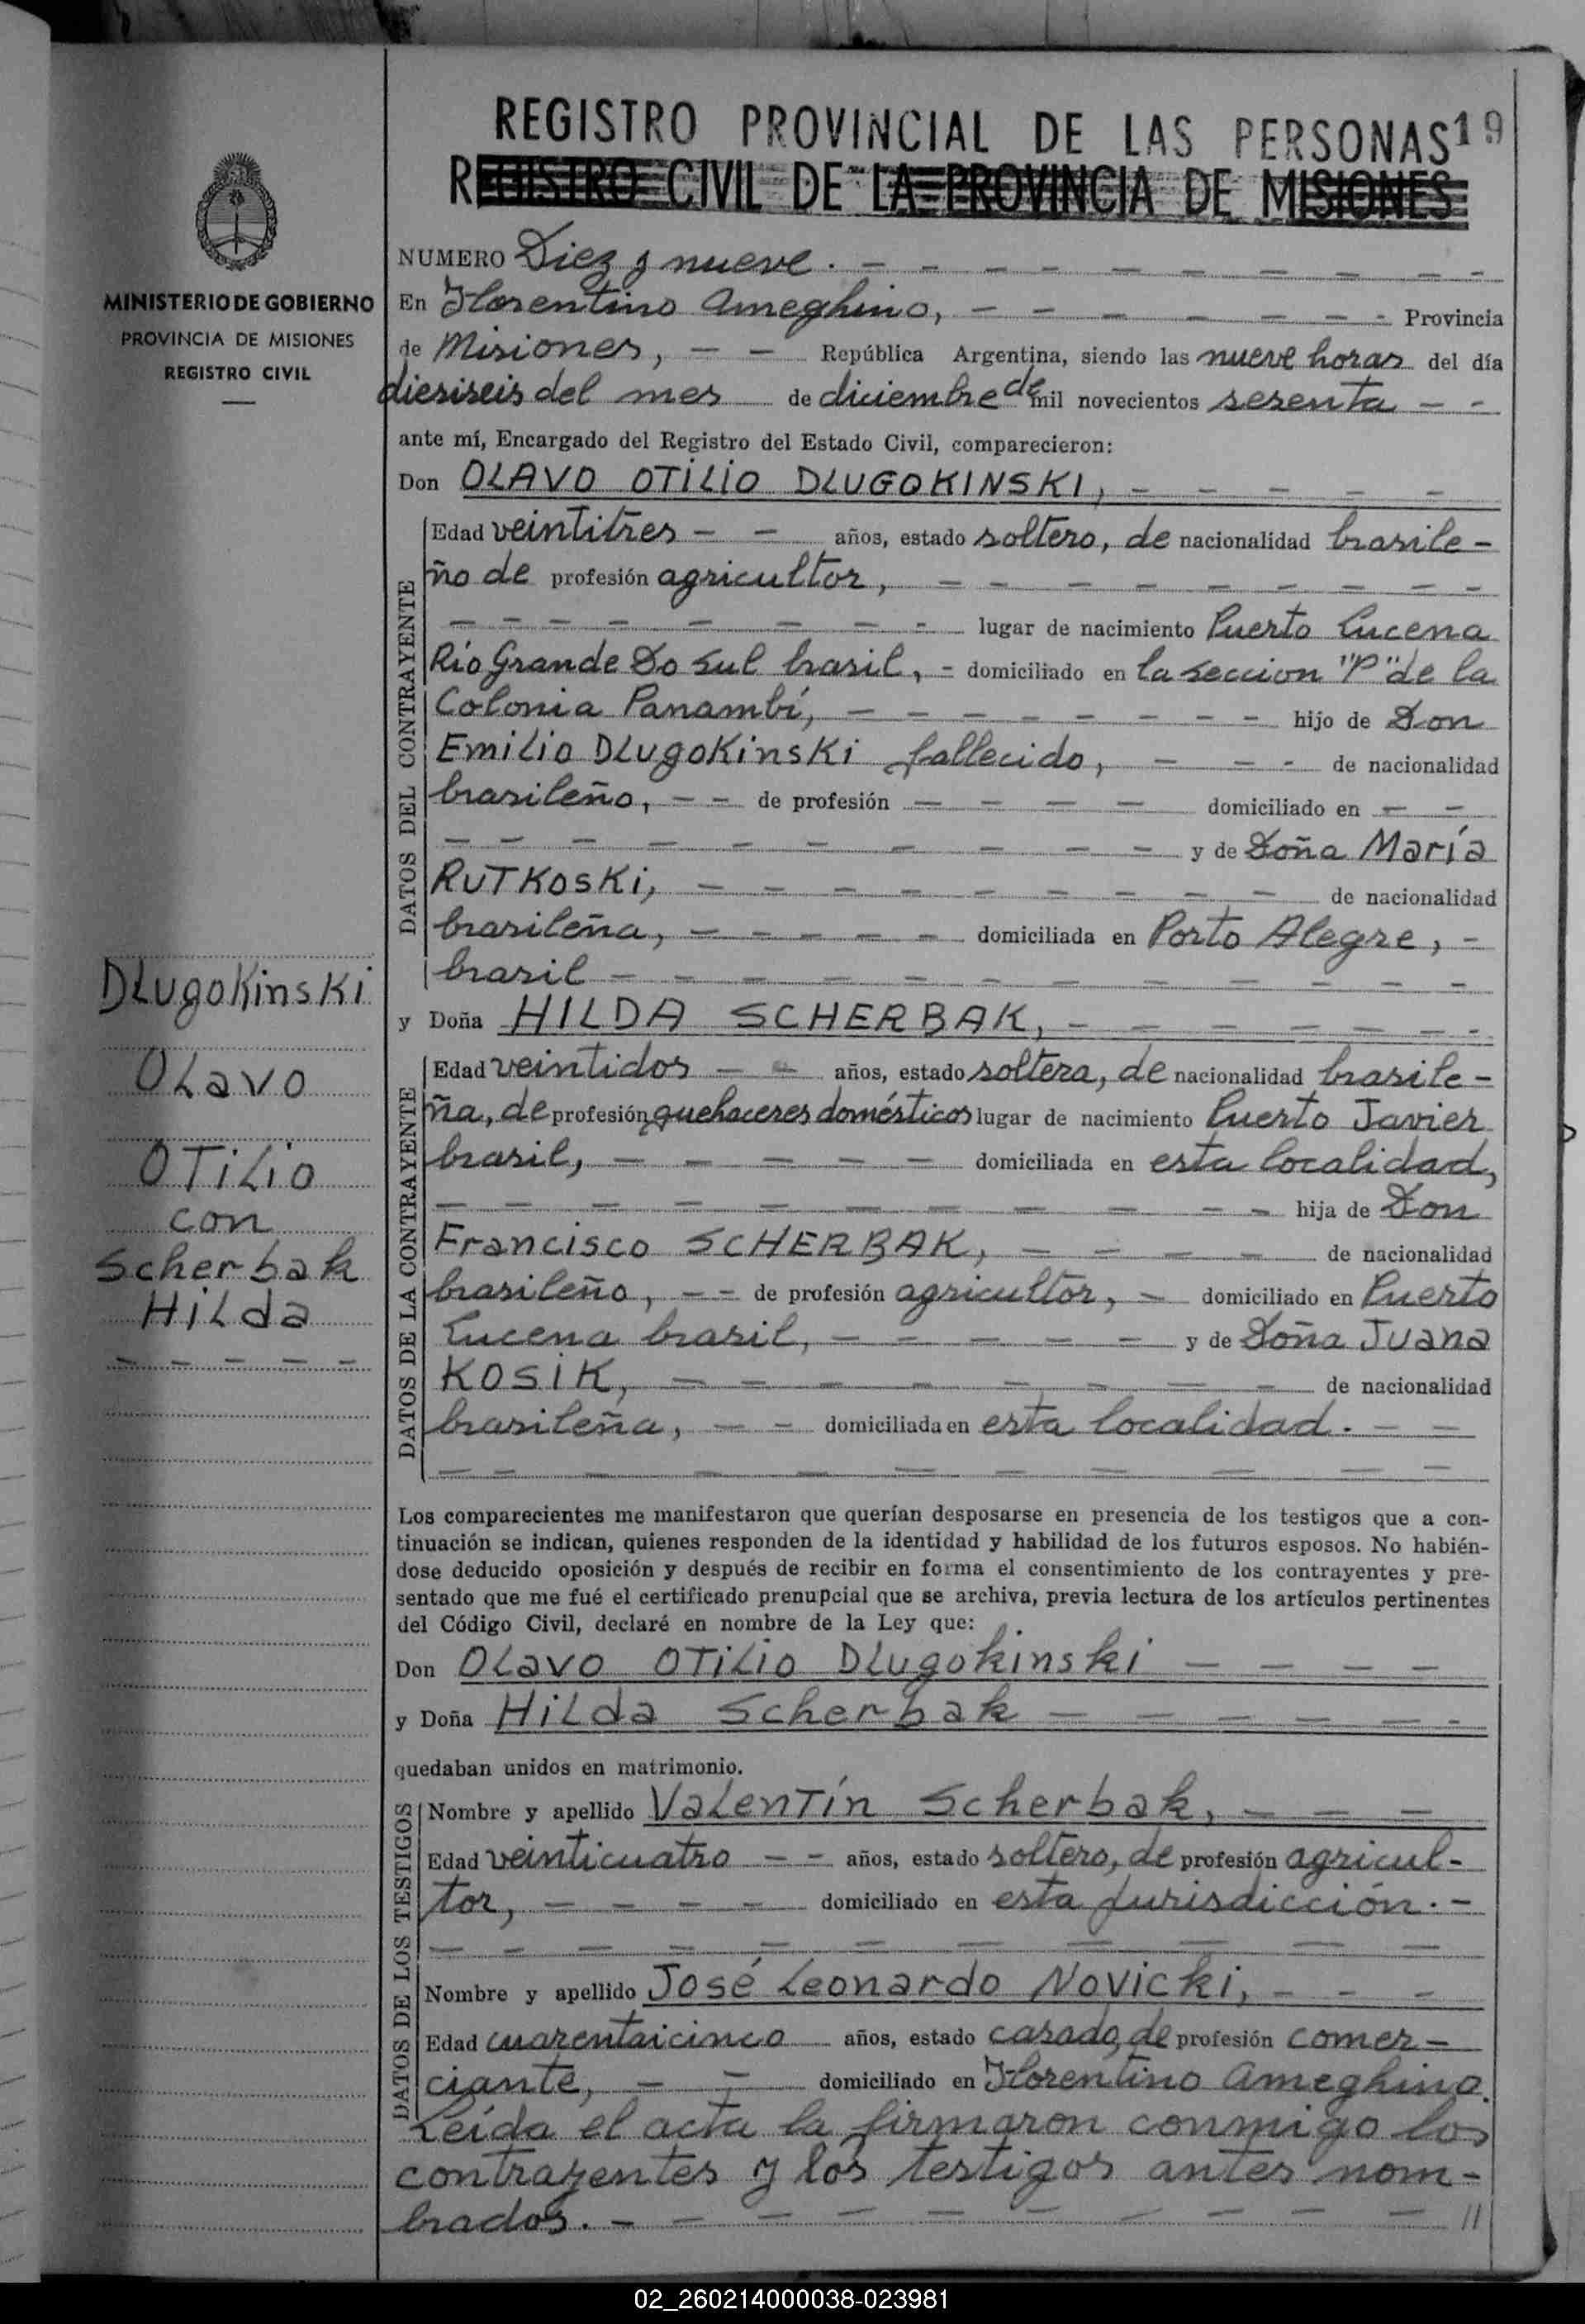 REGISTRO PROVINCIAL DE LAS PERSONAS 19
REGISTRO CIVIL DE LA PROVINCIA DE MISIONES
MINISTERIO DE GOBIERNO
PROVINCIA DE MISIONES
REGISTRO CIVIL
DLugoKinsKi
OLavo
OTiLio
con
Scherbak
HiLda
NUMERO Diez y nueve. - - - - - - - - -
En Florentino Ameghino, - - - - - - - Provincia
de Misiones, - - República Argentina, siendo las nueve horas del día
diesiseis del mes de diciembre de mil novecientos sesenta - -
ante mí, Encargado del Registro del Estado Civil, comparecieron:
Don OLAVO OTILIO DLUGOKINSKI, - - - - -
DATOS DEL CONTRAYENTE
Edad veintitres - - años, estado soltero, de nacionalidad brasile-
ño de profesión agricultor, - - - - - - - -
- - - - - - - - lugar de nacimiento Puerto Lucena
Río Grande Do Sul brasil, - domiciliado en la seccion "P" de la
Colonia Panambí, - - - - - - - - hijo de Don
EmiLio DLugoKinsKi fallecido, - - - de nacionalidad
brasileño, - - de profesión - - - - domiciliado en - -
- - - - - - - - - y de Doña María
RUTKosKi, - - - - - - - - - de nacionalidad
brasileña, - - - - - domiciliada en Porto Alegre, -
brasil - - - - - - - - - - -
y Doña HILDA SCHERBAK, - - - - - - -
DATOS DE LA CONTRAYENTE
Edad veintidos - - años, estado soltera, de nacionalidad brasile-
ña, de profesión quehaceres domésticos lugar de nacimiento Puerto Javier
brasil, - - - - - domiciliada en esta localidad,
- - - - - - - - - - - hija de Don
Francisco SCHERBAK, - - - - de nacionalidad
brasileño, - - de profesión agricultor, - domiciliado en Puerto
Lucena brasil, - - - - - y de Doña Juana
KOSiK, - - - - - - - - de nacionalidad
brasileña, - - domiciliada en esta localidad. - -
- - - - - - - - - - -
Los comparecientes me manifestaron que querían desposarse en presencia de los testigos que a con-
tinuación se indican, quienes responden de la identidad y habilidad de los futuros esposos. No habién-
dose deducido oposición y después de recibir en forma el consentimiento de los contrayentes y pre-
sentado que me fué el certificado prenupcial que se archiva, previa lectura de los artículos pertinentes
del Código Civil, declaré en nombre de la Ley que:
Don OLavo OTiLio DLugokinski - - - -
y Doña HiLda Scherbak - - - - - -
quedaban unidos en matrimonio.
DATOS DE LOS TESTIGOS
Nombre y apellido VaLenTín Scherbak, - - -
Edad veinticuatro - - años, estado soltero, de profesión agricul-
tor, - - - - domiciliado en esta jurisdicción. -
- - - - - - - - - - -
Nombre y apellido José Leonardo Novicki, - - -
Edad cuarentaicinco años, estado casado, de profesión comer-
ciante, - - domiciliado en Florentino Ameghino.
Leída el acta la firmaron conmigo los
contrayentes y los testigos antes nom-
brados. - - - - - - - - - - //
02_260214000038-023981